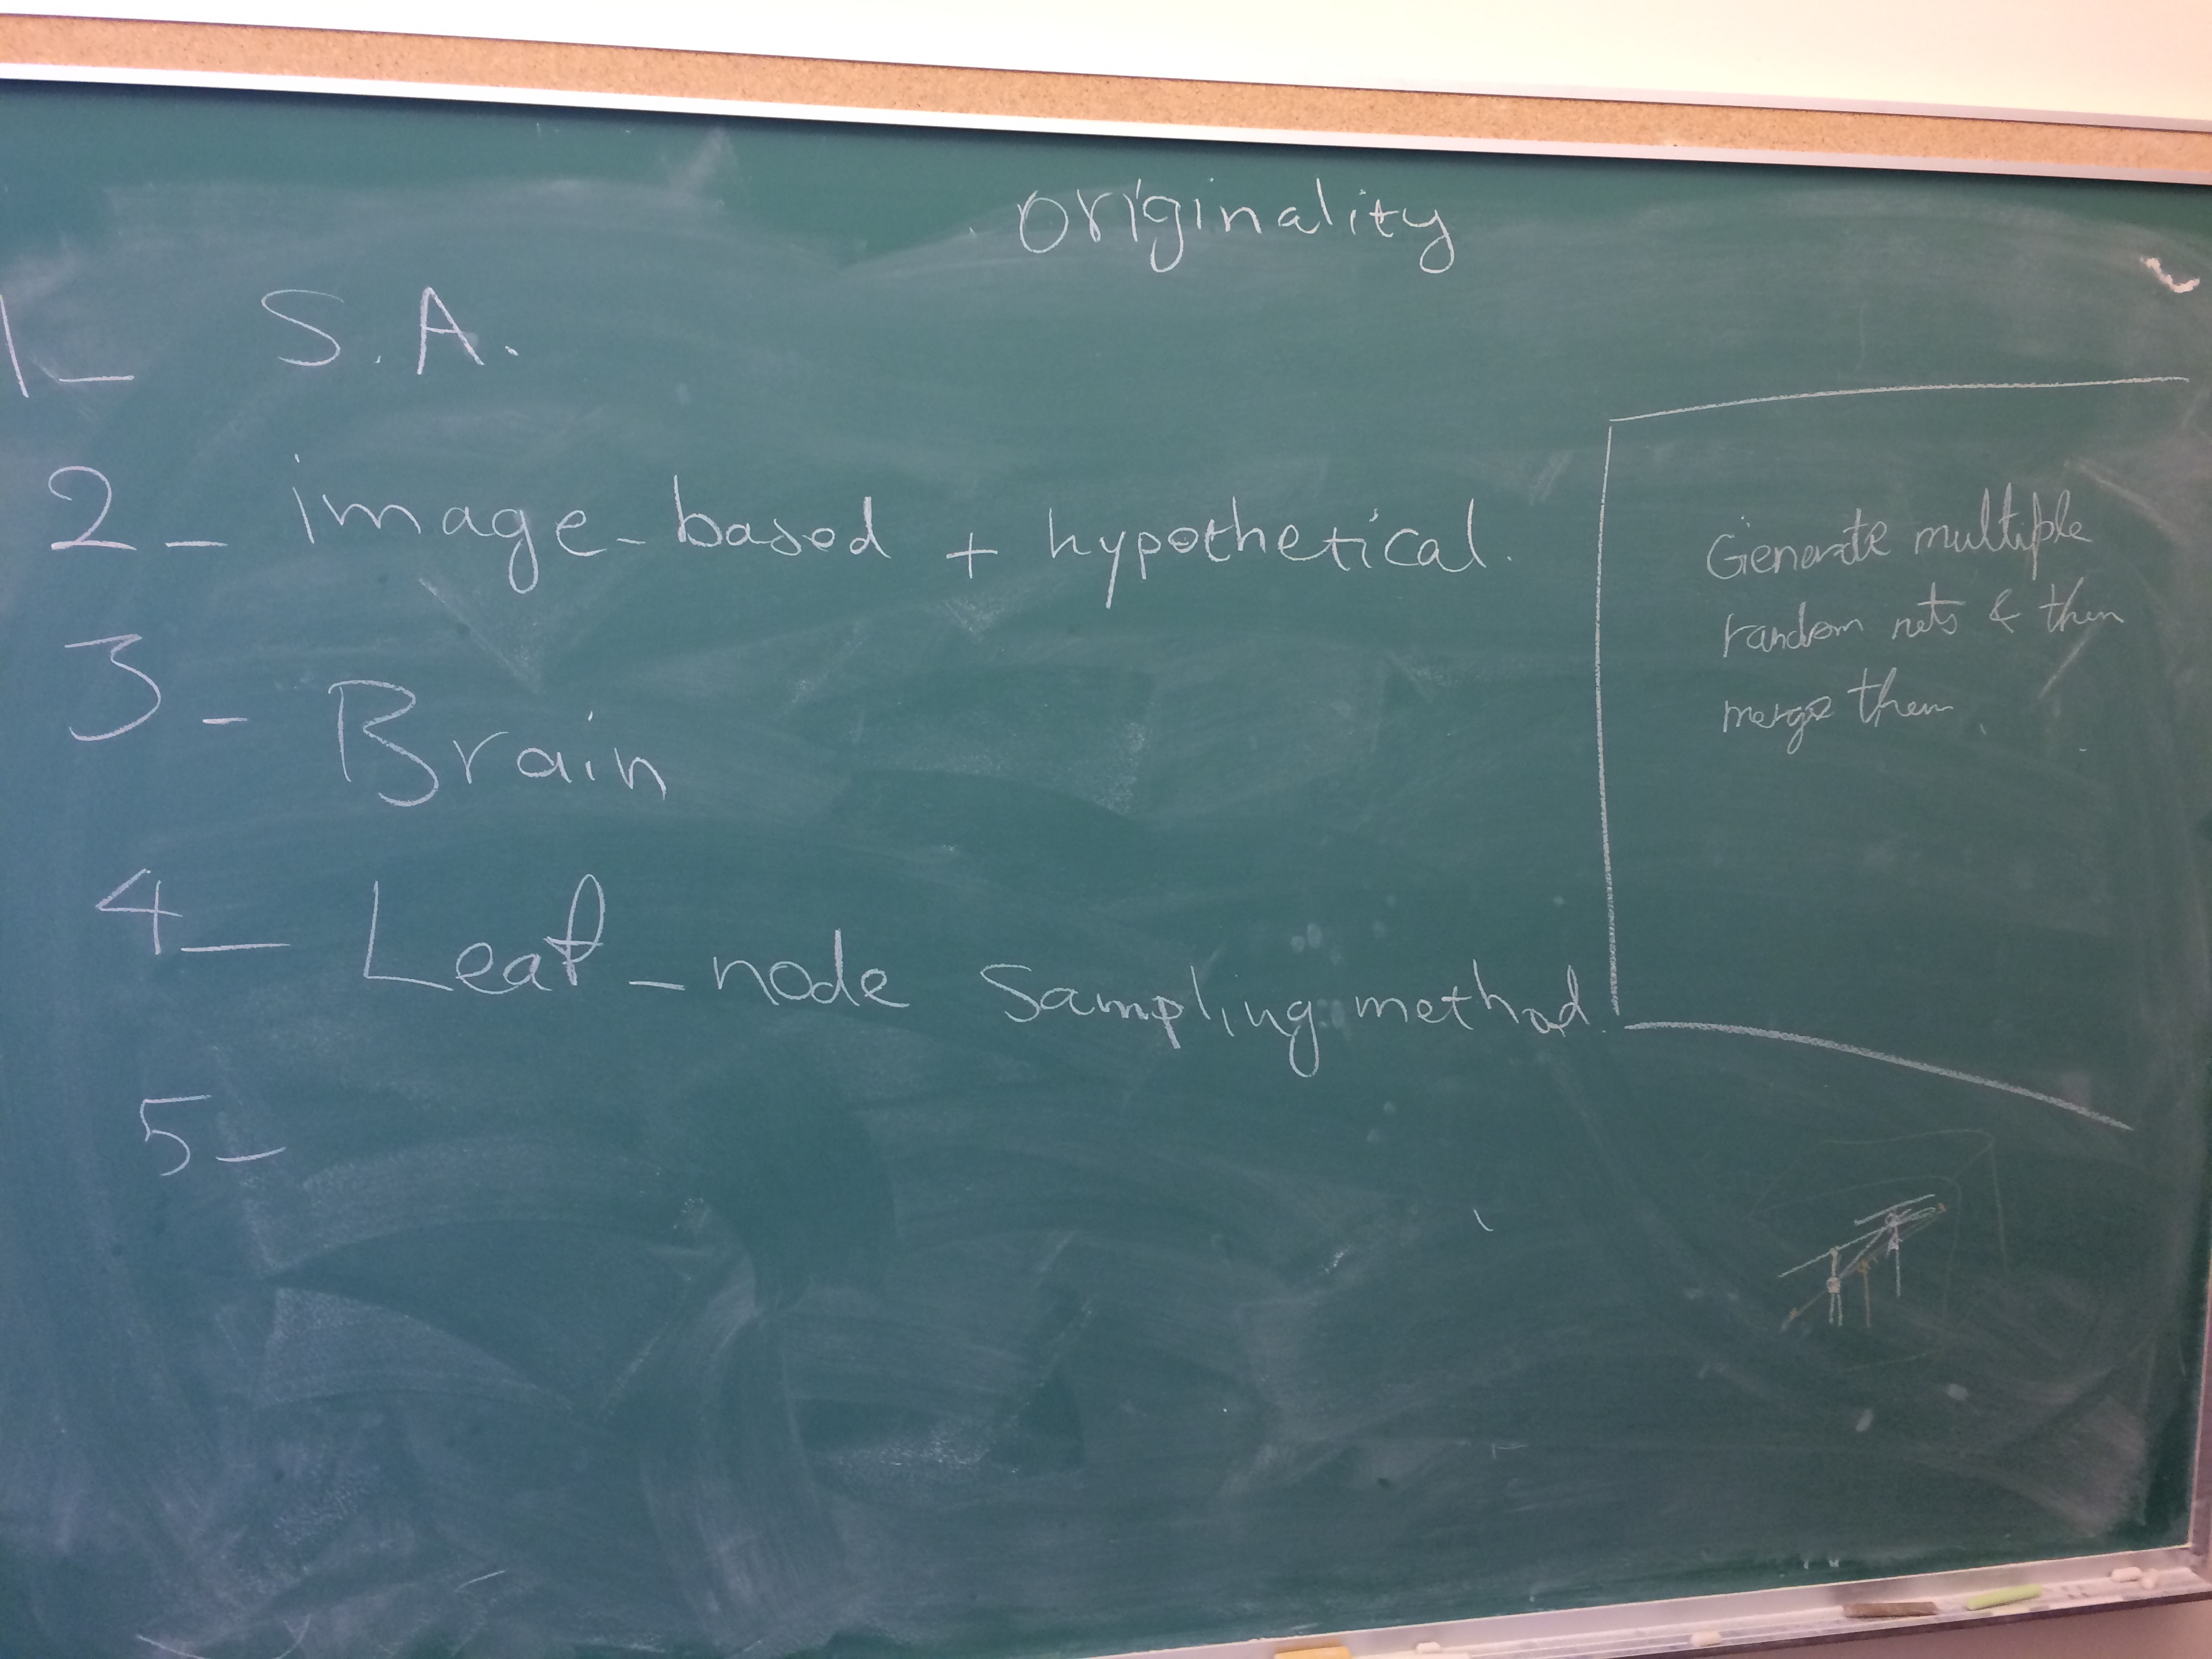 originality
1_ S.A.
2_ image_based + hypothetical.
3_ Brain
4_ Leaf_node Sampling method.
5_
Generate multiple
random nets & then
merge them